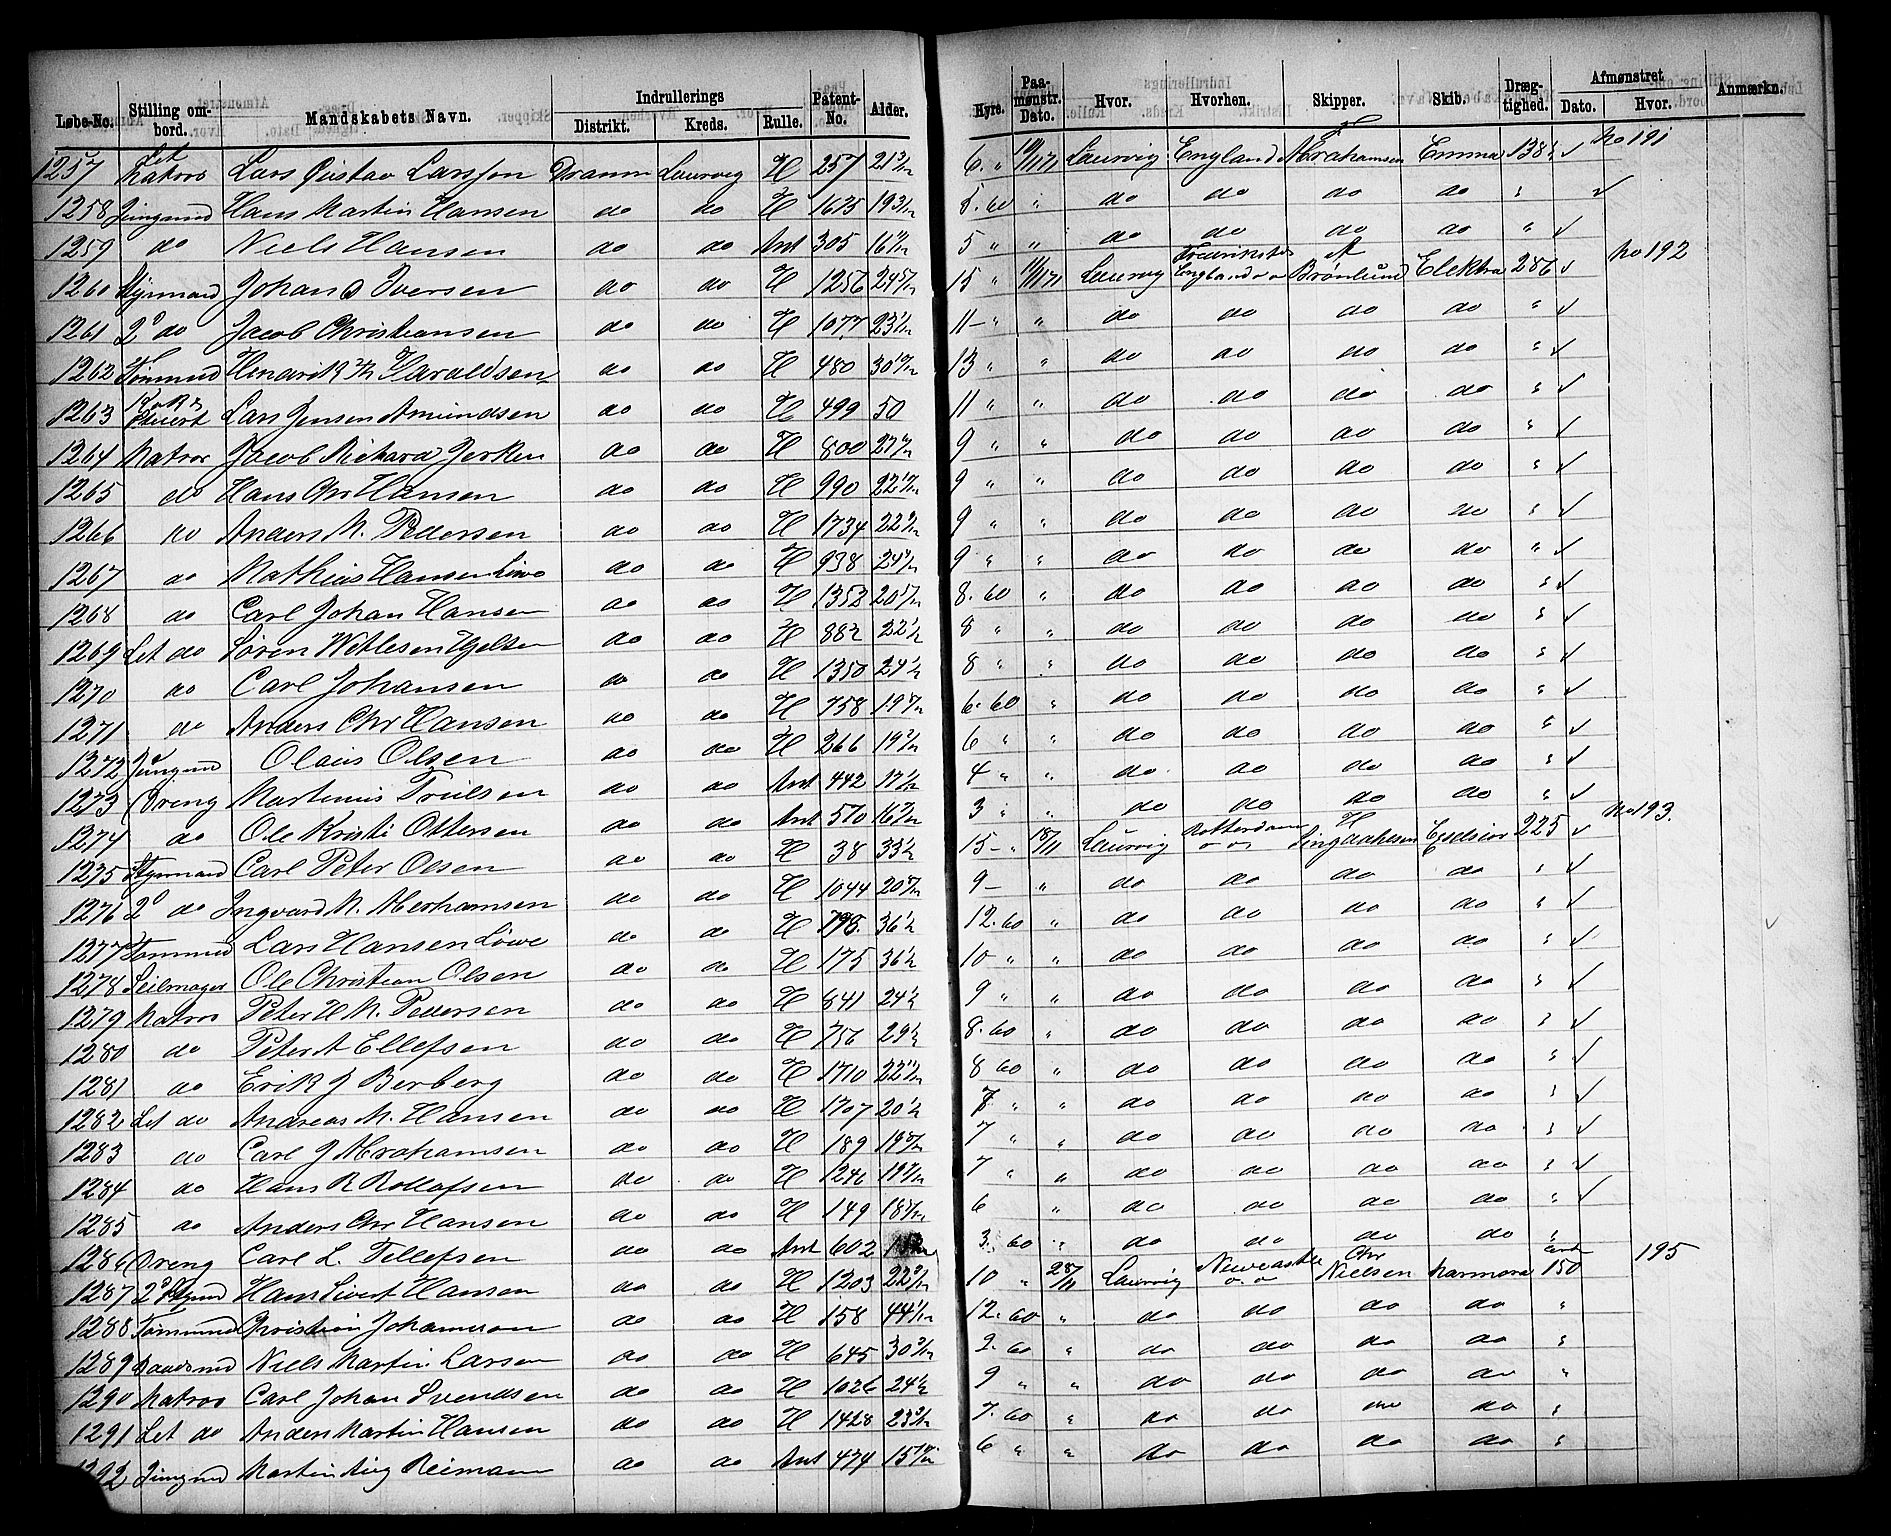 Løbe-No. Stilling ombord. Mandskabets Navn. Indrullerings Distrikt. Kreds. Rulle. Patent-No. Alder. Hyre. Paa-mønstr. Dato. Hvor. Hvorhen. Skipper. Skib. Drægtighed. Afmønstret Dato. Hvor. Anmærkn.
1257 Let Matros Lars Gustav Larssen Dramm Laurvig H 257 21 6 " Laurvig England Abrahamsen Emma 138 No 191
1258 Jungmd Hans Martin Hansen do do H 1675 19 8.60 " do do do do "
1259 do Niels Hansen do do Ant 305 16 5 " " do do do do "
1260 Styrmand Johan Iversen do do H 1256 24 15 " Laurvig Fredrikstad England A Brønlund Elektra 286 No 192
1261 2den do Jacob Christiansen do do H 1077 23 11 - " do do do do "
1262 Tømmmd Hendrik Haraldsen do do H 480 30 13 " " do do do do "
1263 Kok & Stuert Lars Jensen Amundsen do do H 499 50 11 " " do do do do "
1264 Matros Jacob Richard Jerken do do H 800 27 9 " " do do do do "
1265 do Hans Chr Hansen do do H 990 22 9 " " do do do do "
1266 do Anders M. Pedersen do do H 1734 22 9 " " do do do do "
1267 do Mathias Hansen Løwe do do H 938 24 9 " " do do do do "
1268 do Carl Johan Hansen do do H 1353 20 8.60 " do do do do "
1269 Let do Søren Wetlesen do do H 882 22 8 " " do do do do "
1270 do Carl Johansen do do H 1350 24 8 " " do do do do "
1271 do Anders Chr Hansen do do H 758 19 6.60 " do do do do "
1272 Jungmd Olaus Olsen do do H 266 19 6 " " do do do do "
1273 Dreng Martinius Truelsen do do Ant 442 17 4 " " do do do do "
1274 do Ole Kristi Ottersen do do Ant 510 16 3 " " do do do do "
1275 Styrmand Carl Peter Olsen do do H 38 35 15 - " 18/11 Laurvig Rotterdam H Exelsior 225 No 193.
1276 2den do Ingvard M. Aberhamsen do do H 1044 20 9 - " do do do do "
1277 Tømmmd Lars Hansen Løwe do do H 36 12.60 " do do do do "
1278 Seilmager Ole Christian Olsen do do H 175 36 10 " " do do do do "
1279 Matros Peter H M. Pedersen do do H 841 24 9 " " do do do do "
1280 do Peter A Ellefsen do do H 756 29 8.60 " do do do do "
1281 do Erik J Berberg do do H 1710 22 8 60 " do do do do "
1282 Let do Andreas M. Hansen do do H 1707 20 7 " " do do do do "
1283 do Carl J Abrahamsen do do H 189 19 7 " " do do do do "
1284 do Hans R Rollofsen do do H 1246 19 7 " " do do do do "
1285 do Anders Chr Hansen do do H 149 18 6 " do do do do "
1286 Dreng Carl L. Tellefsen do do Ant 602 3.60 " do do do do "
1287 2den Stymd Hans Sivert Hansen do do H 1203 22 10 " 28/11 Laurvig Newcastle Chr Nielsen Marmora 150 195
1288 Tømmmd Christian Johannesen do do H 158 44 12.60 " do do do do "
1289 Baadsmd Niels Martin Larsen do do H 645 30 9.60 " do do do do "
1290 Matros Carl Johan Svendsen do do H 1026 24 9 " " do do do do "
1291 Let do Anders Martin Hansen do do H 1428 23 7.60 " do do do do "
1292 Jungmd Martin Aug Reimann do do Ant 474 15 6 " " do do do do "